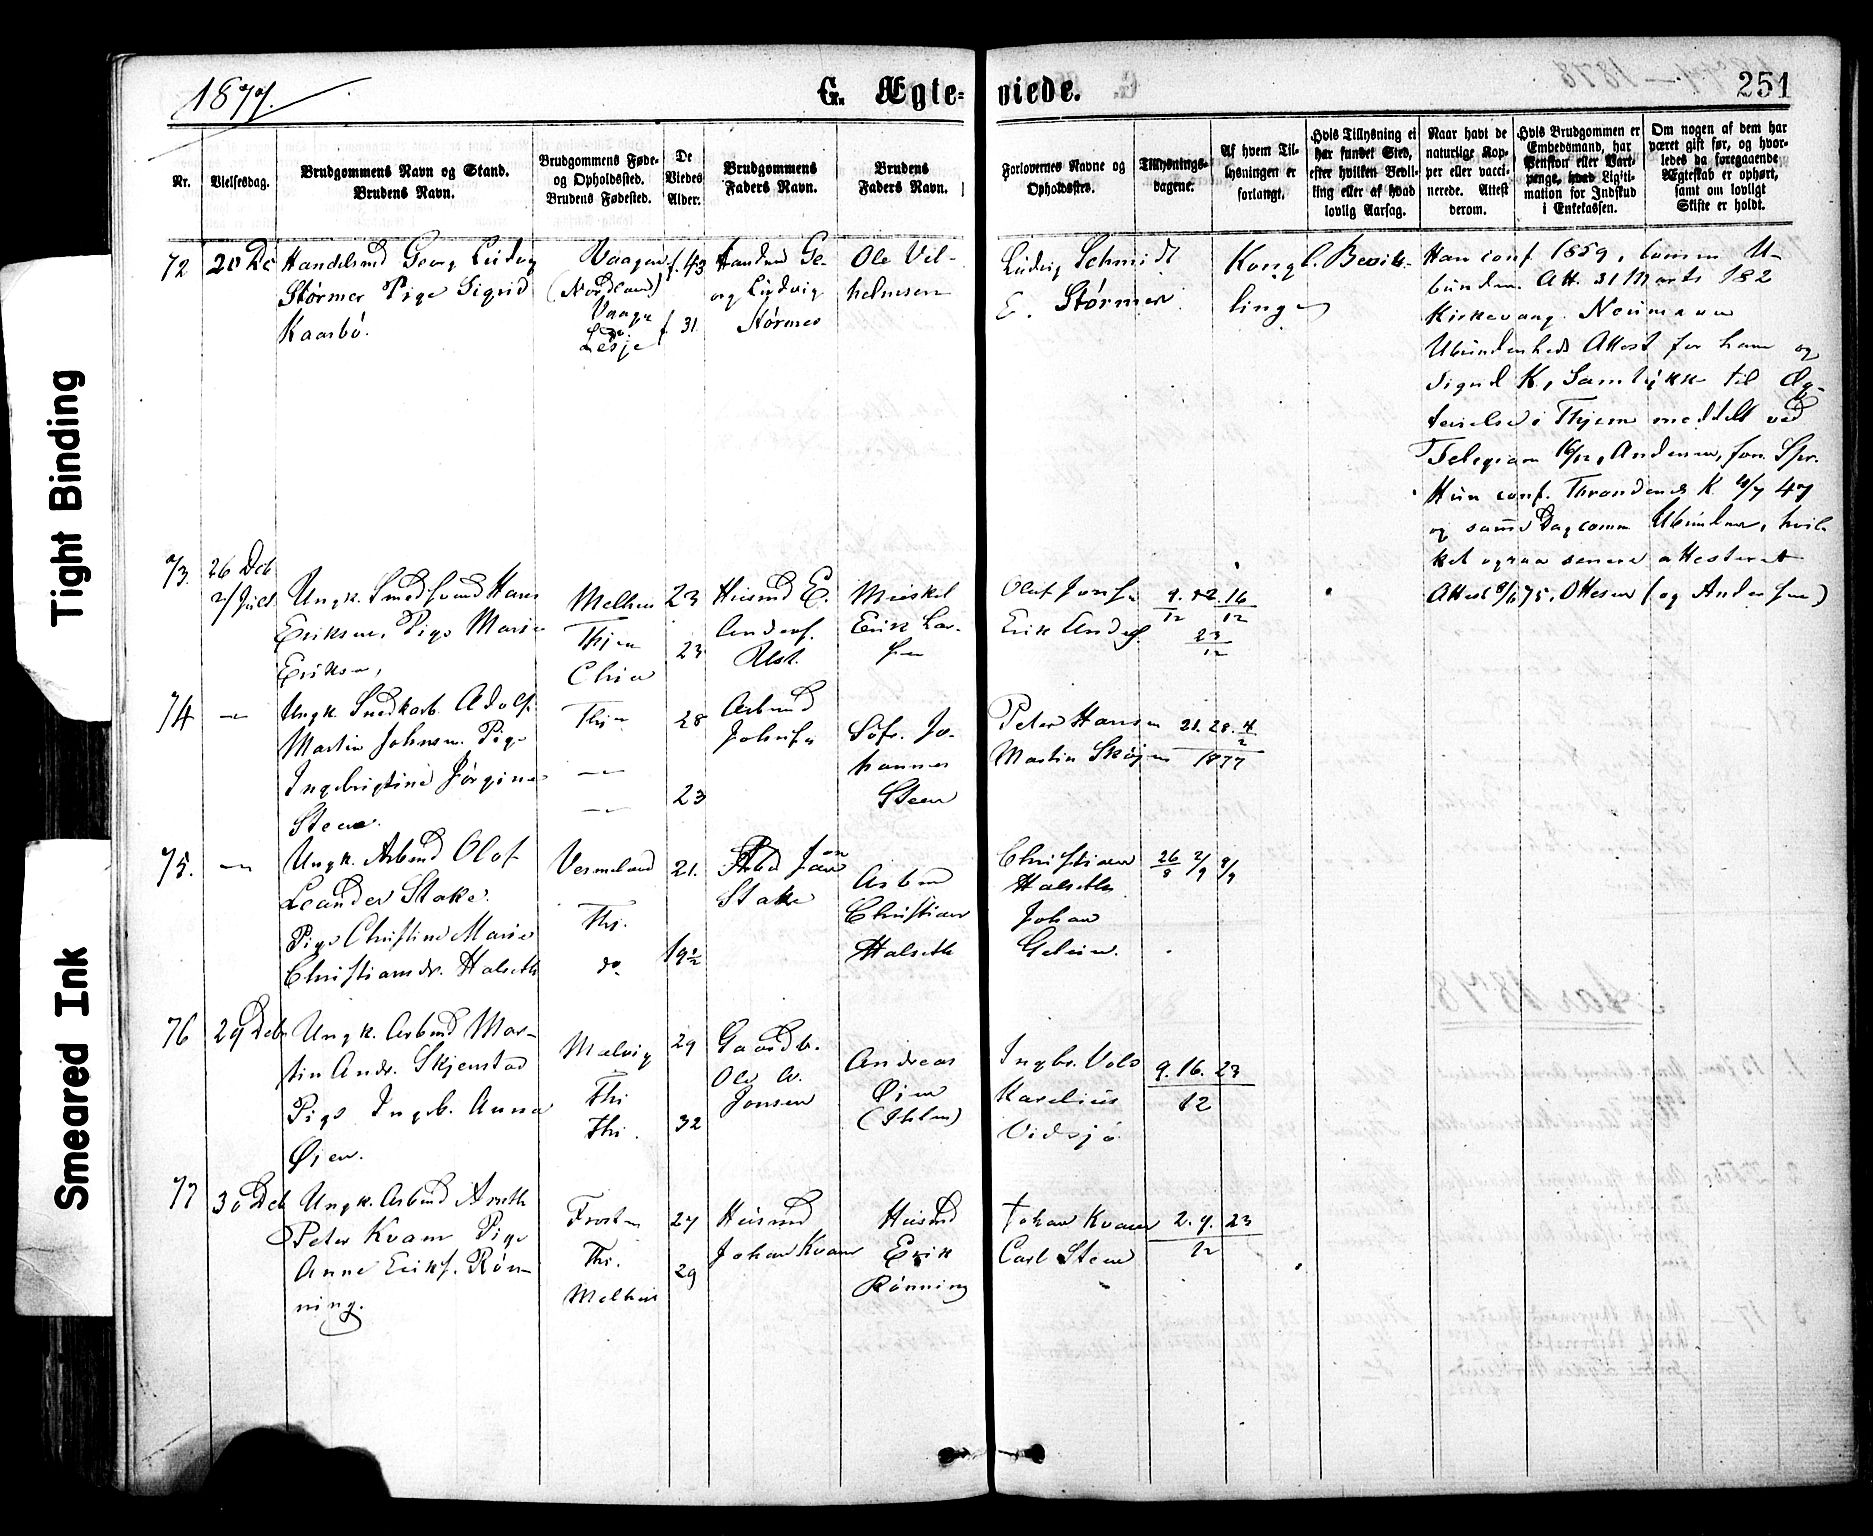 Tight Binding
Smeared Ink
1877.
G. Ægte=
viede.
251
Nr.
Vielsesdag.
Brudgommens Navn og Stand.
Brudens Navn.
Brudgommens Føde-
og Opholdssted.
Brudens Fødested.
De
Viedes
Alder.
Brudgommens
Faders Navn.
Brudens
Faders Navn.
Forlovernes Navne og
Opholdssted.
Tillysnings-
dagene.
Af hvem Til-
lysningen er
forlangt.
Hvis Tillysning ei
har fundet Sted,
efter hvilken Bevil-
ling eller af hvad
lovlig Aarsag.
Naar havt de
naturlige Kop-
per eller vacci-
nerede. Attest
derom.
Hvis Brudgommen er
Embedsmand, har
Pension eller Vart-
penge, hvad Ligiti-
mation for Indskud
i Enkekassen.
Om nogen af dem har
været gift før, og hvor-
ledes da foregaaende
Ægteskab er ophørt,
samt om lovligt
Skifte er holdt.
72
20 De
Handelsmd Georg Ludvig
Størmer Pige Sigrid
Kaarbø.
Vaagen
(Nordland)
Vaage
Lesje
f. 43
f 31
Ge-
org Ludvig
Størmer
Ole Vil-
helmsen
Ludvig Schmidt
E. Størmer
Kongl. Bevil-
ling
Han conf 1859, comm U-
bunden. Att. 31 Marts
Kirkesang. Neumann
Ubundenheds Attest for ham og
Sigrid K, Samtykke til Æg-
tevielse i Thjem meddelt ved
Telegram 16/12, Andersen, fon. Spr.
Hun conf. Throndenes K 47
og samme Dag comm Ubunden, hvil-
ket ogsaa senere attesteret
Attest 75. Ottesen (og Andersen)
73.
26 Deb
2/ Juled
Ungk. Smedsvend Hans
Eriksen, Pige Marie
Eriksen,
Melhus
Thjem
23
23
Husmd E.
Anders.
Erik Lar-
sen
Olaf Jonsen
Erik Anders.
9.
12
16
12
23
12
74
—
Ungk. Snedkerb. Adolf
Martin Johnsen. Pige
Ingebrigtine Jørgine
Steen.
—
—
28
23
Arbmd
Johnsen
Jo-
hannes
Steen
Peter Hansen
Martin Skøyen
21. 28. 4
2
1877
75.
—
Ungk. Arbmd Olof
Leander Stake.
Pige Christine Marie
Christiansdr. Halseth
Vermeland
Thj.
do
21.
19½
Stake
Arbmd
Christian
Halseth
Christian
Halseth
Johan
26
8
2/9 9/9
76
29 Deb
Ungk. Arbmd Mar-
tin Andr. Skjenstad
Pige Ingeb. Anna
Øien.
Malvig
Thj
Thj.
29
32
Gaardb.
Ole A.
Jonsen
Andreas
Øien
(Ihlen)
Ingbr. Vols
Karelius
Vidsjø
9. 16. 23
12
77
30 Deb
Ungk. Arbmd Arnth
Peter Kvam Pige
Anne Eriks. Røn-
ning.
Frosten
Thj.
Melhus
27
29
Husmd
Johan Kvam
Husmd
Erik
Rønning
Johan Kvam
Carl Steen
2. 9. 23
12